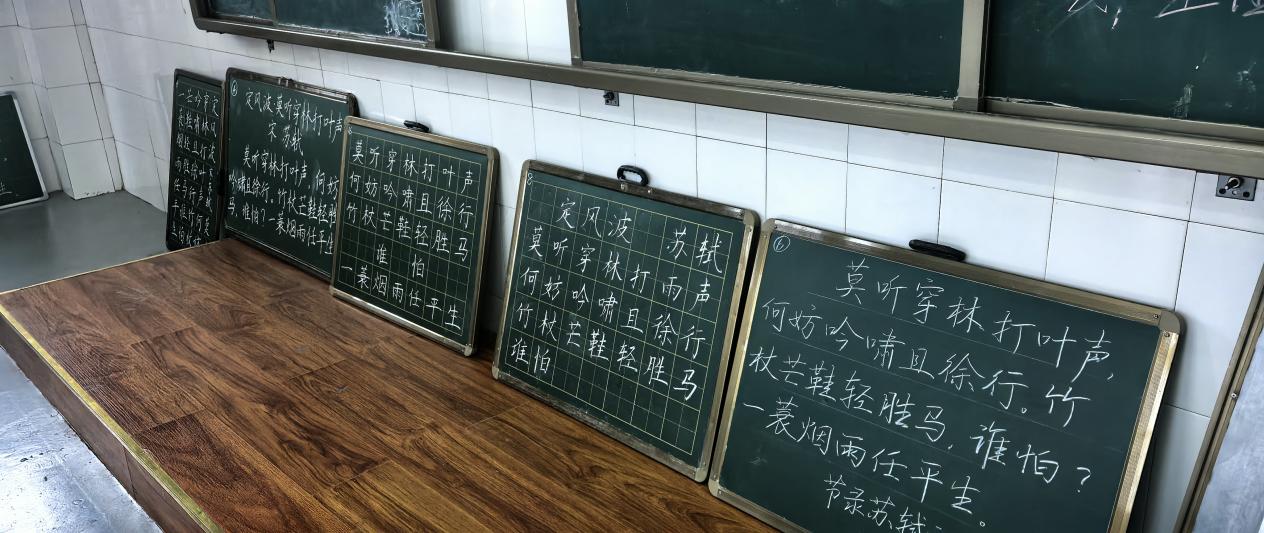 ⑥
定风波·莫听穿林打叶声
宋 苏轼
莫听穿林打叶声，何妨
吟啸且徐行。竹杖芒鞋轻胜
马，谁怕？一蓑烟雨任平生
莫听穿林打叶声
何妨吟啸且徐行
竹杖芒鞋轻胜马
谁怕
一蓑烟雨任平生
定风波 苏轼
莫听穿林打雨声
何妨吟啸且徐行
竹杖芒鞋轻胜马
谁怕
莫听穿林打叶声，
何妨吟啸且徐行。竹
杖芒鞋轻胜马，谁怕？
一蓑烟雨任平生。
节录苏轼